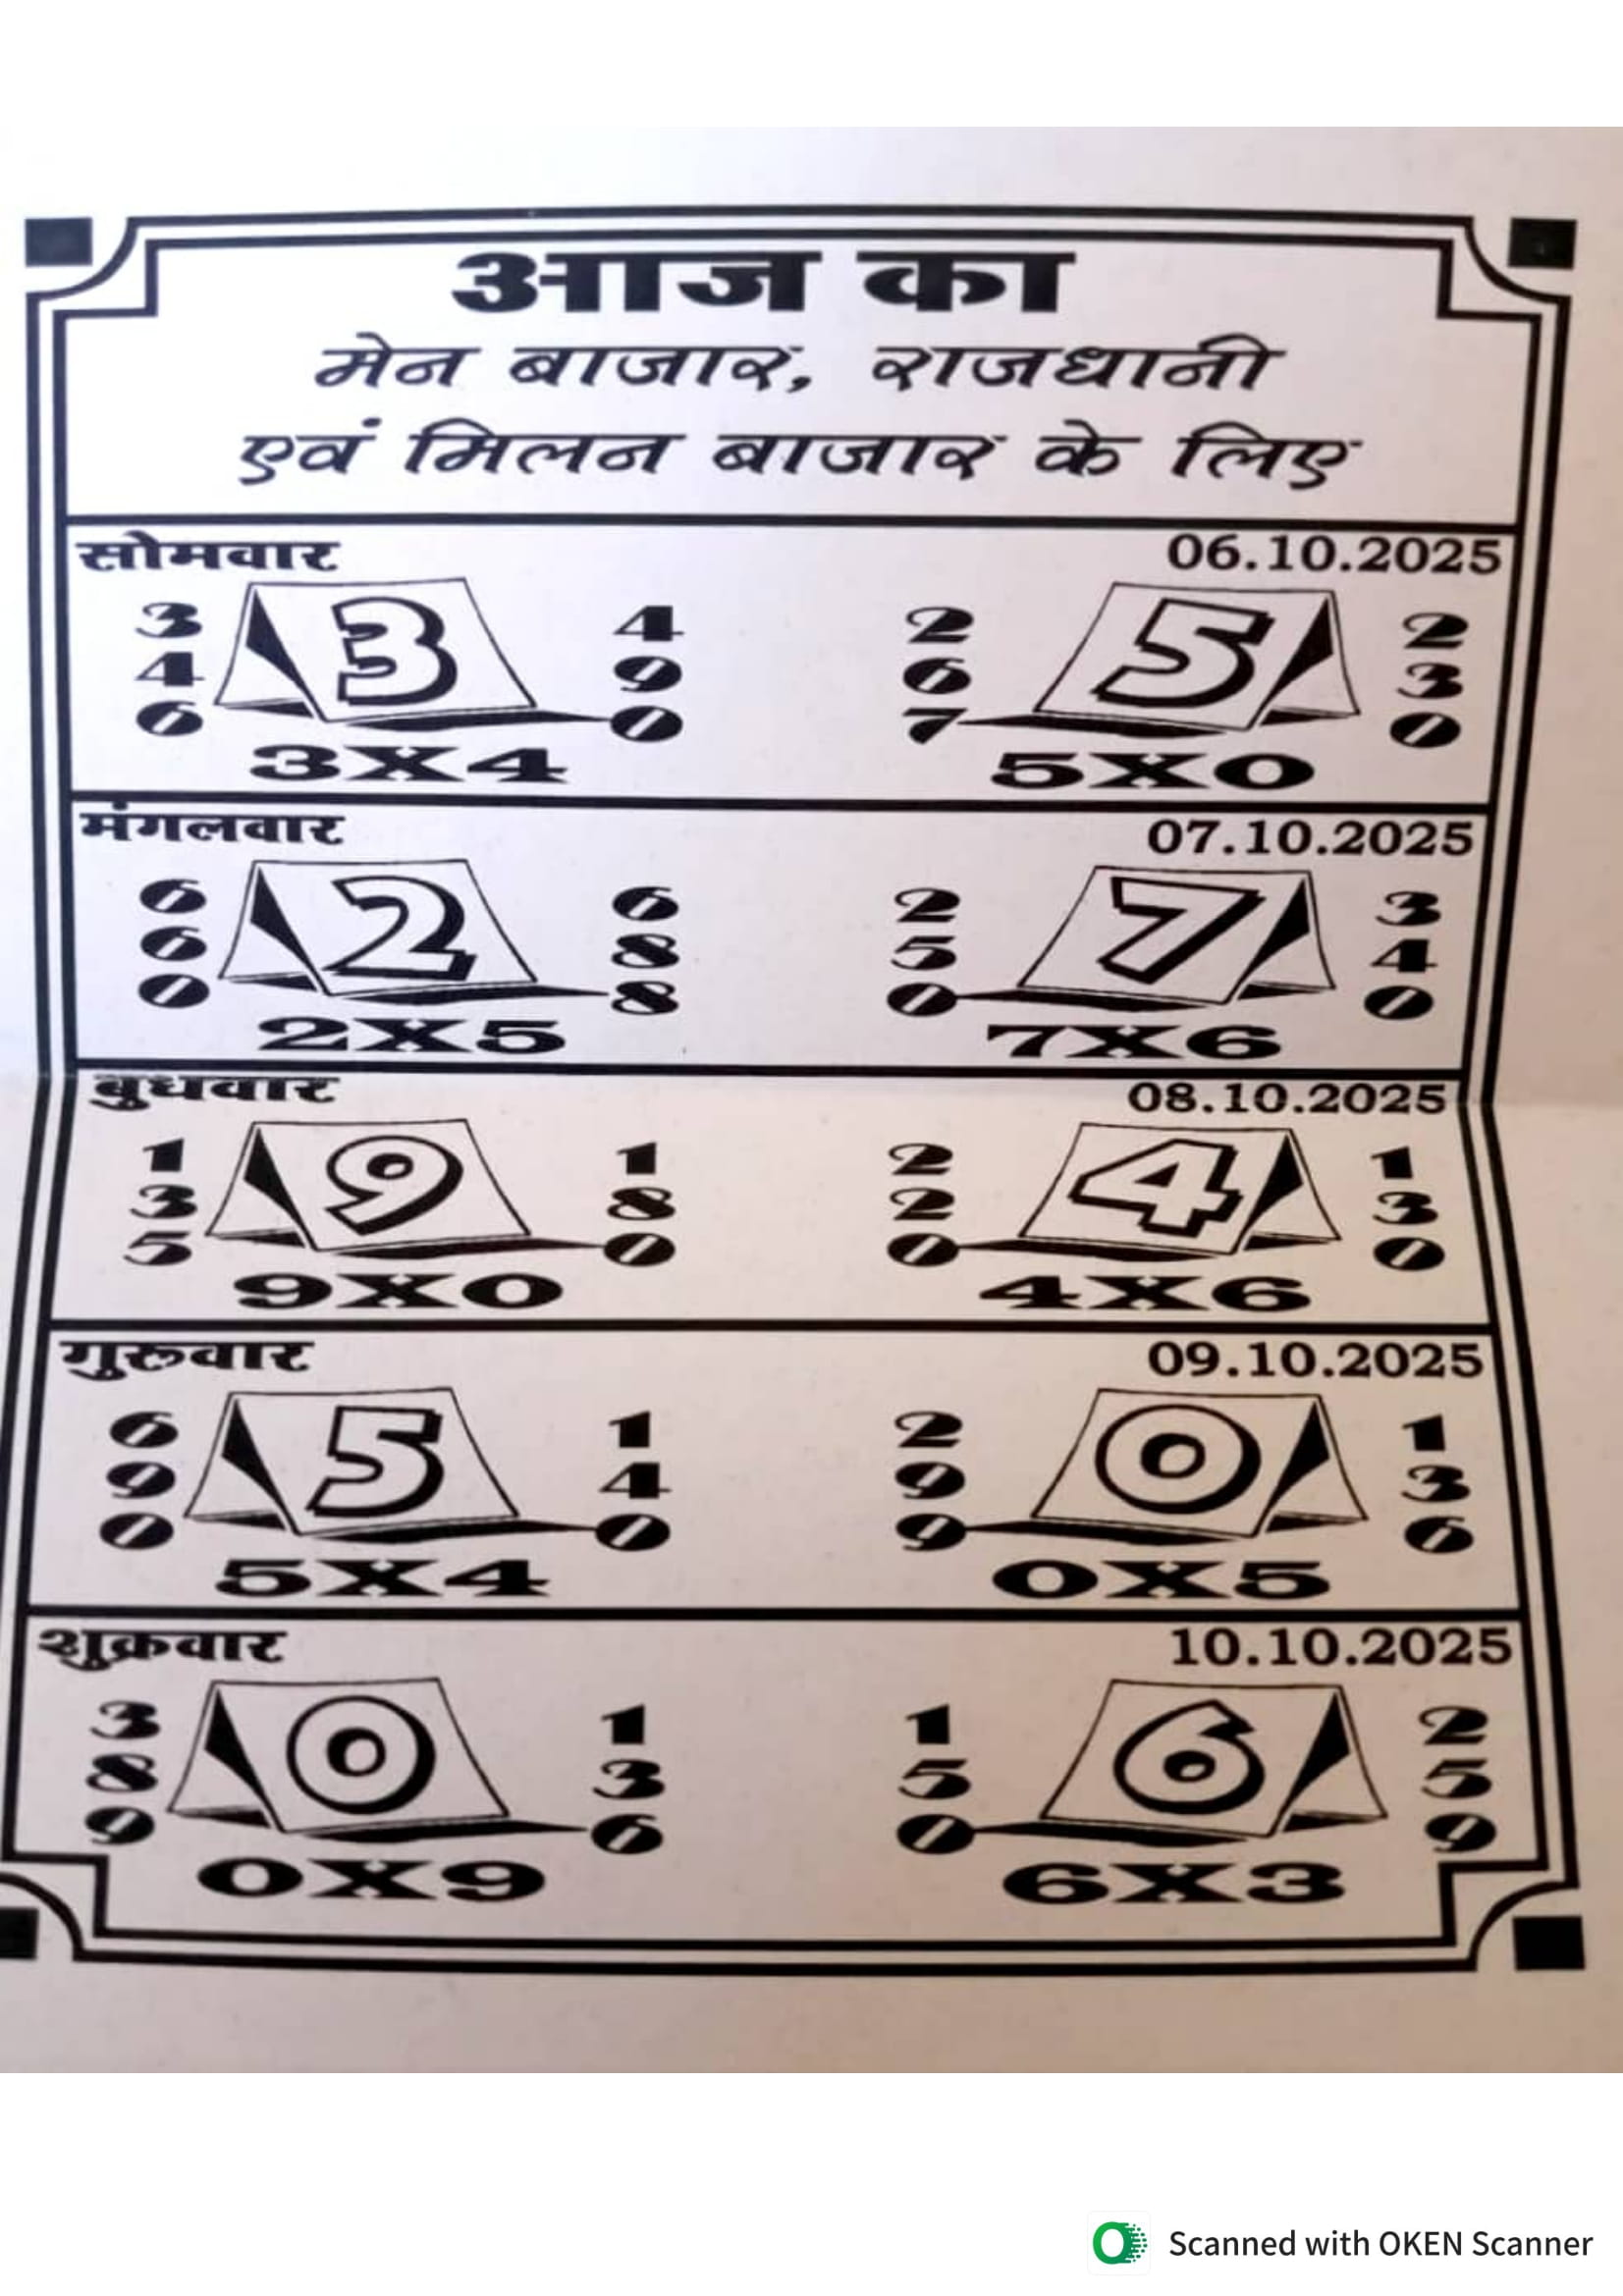 आज का
मेन बाजार, राजधानी
एवं मिलन बाजार के लिए
सोमवार 06.10.2025
3 4 2 2
4 3 9 6 5 3
6 0 7 0
3X4 5X0
मंगलवार 07.10.2025
6 6 2 3
6 2 8 5 7 4
0 8 0 0
2X5 7X6
बुधवार 08.10.2025
1 1 2 1
3 9 8 2 4 3
5 0 0 0
9X0 4X6
गुरुवार 09.10.2025
6 1 2 1
9 5 4 9 0 3
0 0 9 6
5X4 0X5
शुक्रवार 10.10.2025
3 1 1 2
8 0 3 5 6 5
9 6 0 9
0X9 6X3
Scanned with OKEN Scanner